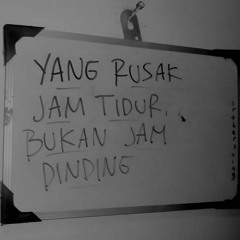 YANG RUSAK
JAM TIDUR,
BUKAN JAM
DINDING